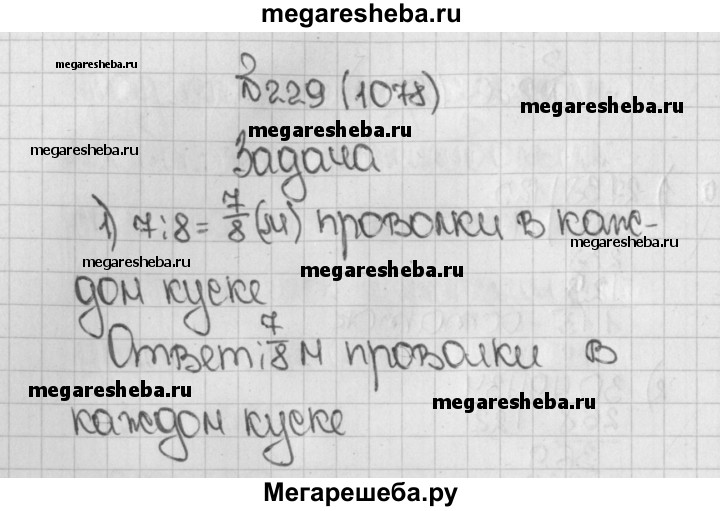 megaresheba.ru
megaresheba.ru
№229 (1078)
megaresheba.ru
megaresheba.ru
megaresheba.ru
Задача
1) 7:8=7/8(м) проволки в каж-
megaresheba.ru
megaresheba.ru
megaresheba.ru
дом куске
Ответ: 7/8 м проволки в
megaresheba.ru
megaresheba.ru
каждом куске
Мегарешеба.ру